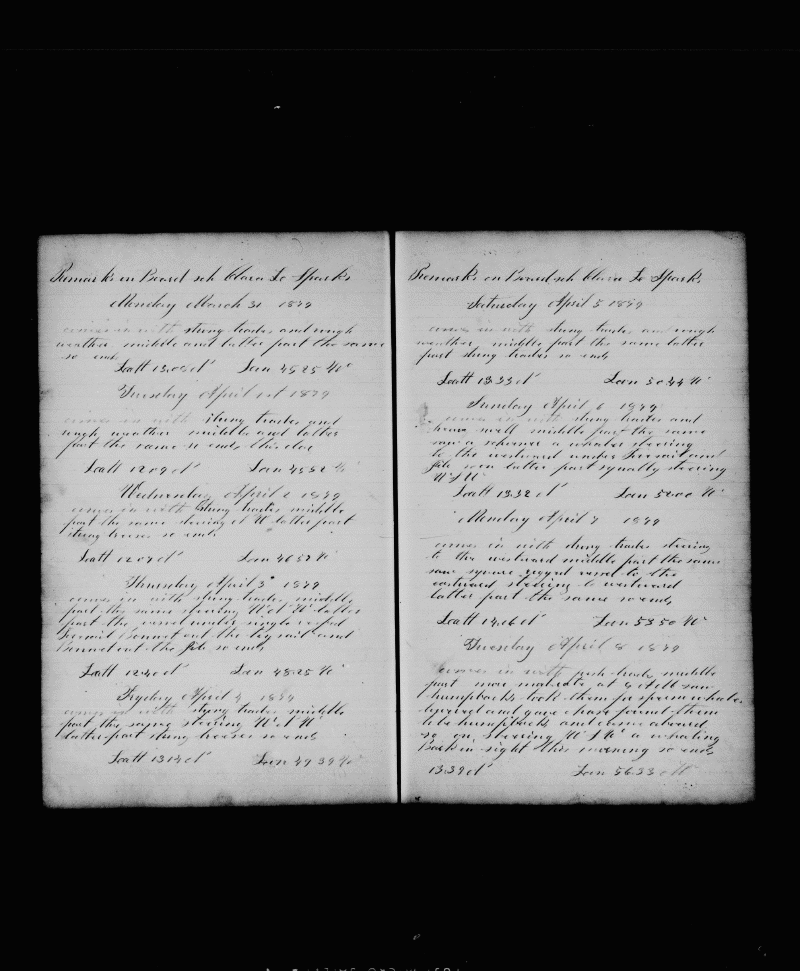 Remarks on Board sch Clara L Sparks
Monday March 31 1879
comes in with strong trades and rough
weather middle and latter part the same
so ends
Latt 13.05 N Lon 45.25 W
Tuesday April 1st 1879
comes in with strong trades and
rough weather middle and latter
part the same so ends this day
Latt 12.09 N Lon 45.52 W
Wednesday April 2 1879
comes in with strong trades middle
part the same steering W latter part
strong breeses so ends
Latt 12.07 N Lon 46.57 W
Thursday April 3 1879
comes in with strong trades middle
part the same steering W latter
part the vessel under single reefed
foresail Bonnet out the trysail and
Bonnet out the jib so ends
Latt 12.40 N Lon 48.25 W
Fryday April 4 1879
comes in with strong trades middle
part the same steering W
latter part strong breeses so ends
Latt 13.14 N Lon 49.39 W
Remarks on Board sch Clara L Sparks
Saturday April 5 1879
comes in with strong trades and rough
weather middle part the same latter
part strong trades so ends
Latt 13.33 N Lon 50.44 W
Sunday April 6 1879
comes in with strong trades and
heavy swell middle part the same
saw a schooner a whaler steering
to the westward under foresail and
jib latter part squally steering
Latt 13.32 N Lon 52.00 W
Monday April 7 1879
comes in with strong trades steering
to the westward middle part the same
saw square rigged vessel to the
eastward steering to westward
latter part the same so ends
Latt 14.16 N Lon 53.50 W
Tuesday April 8 1879
comes in with fresh trades middle
part more moderate at saw
humpbacks took them for sperm whales
lowered and gave chase found them
to be humpbacks and came aboard
steering a whaling
Bark in sight this morning so ends
13.39 N Lon 56.33 W